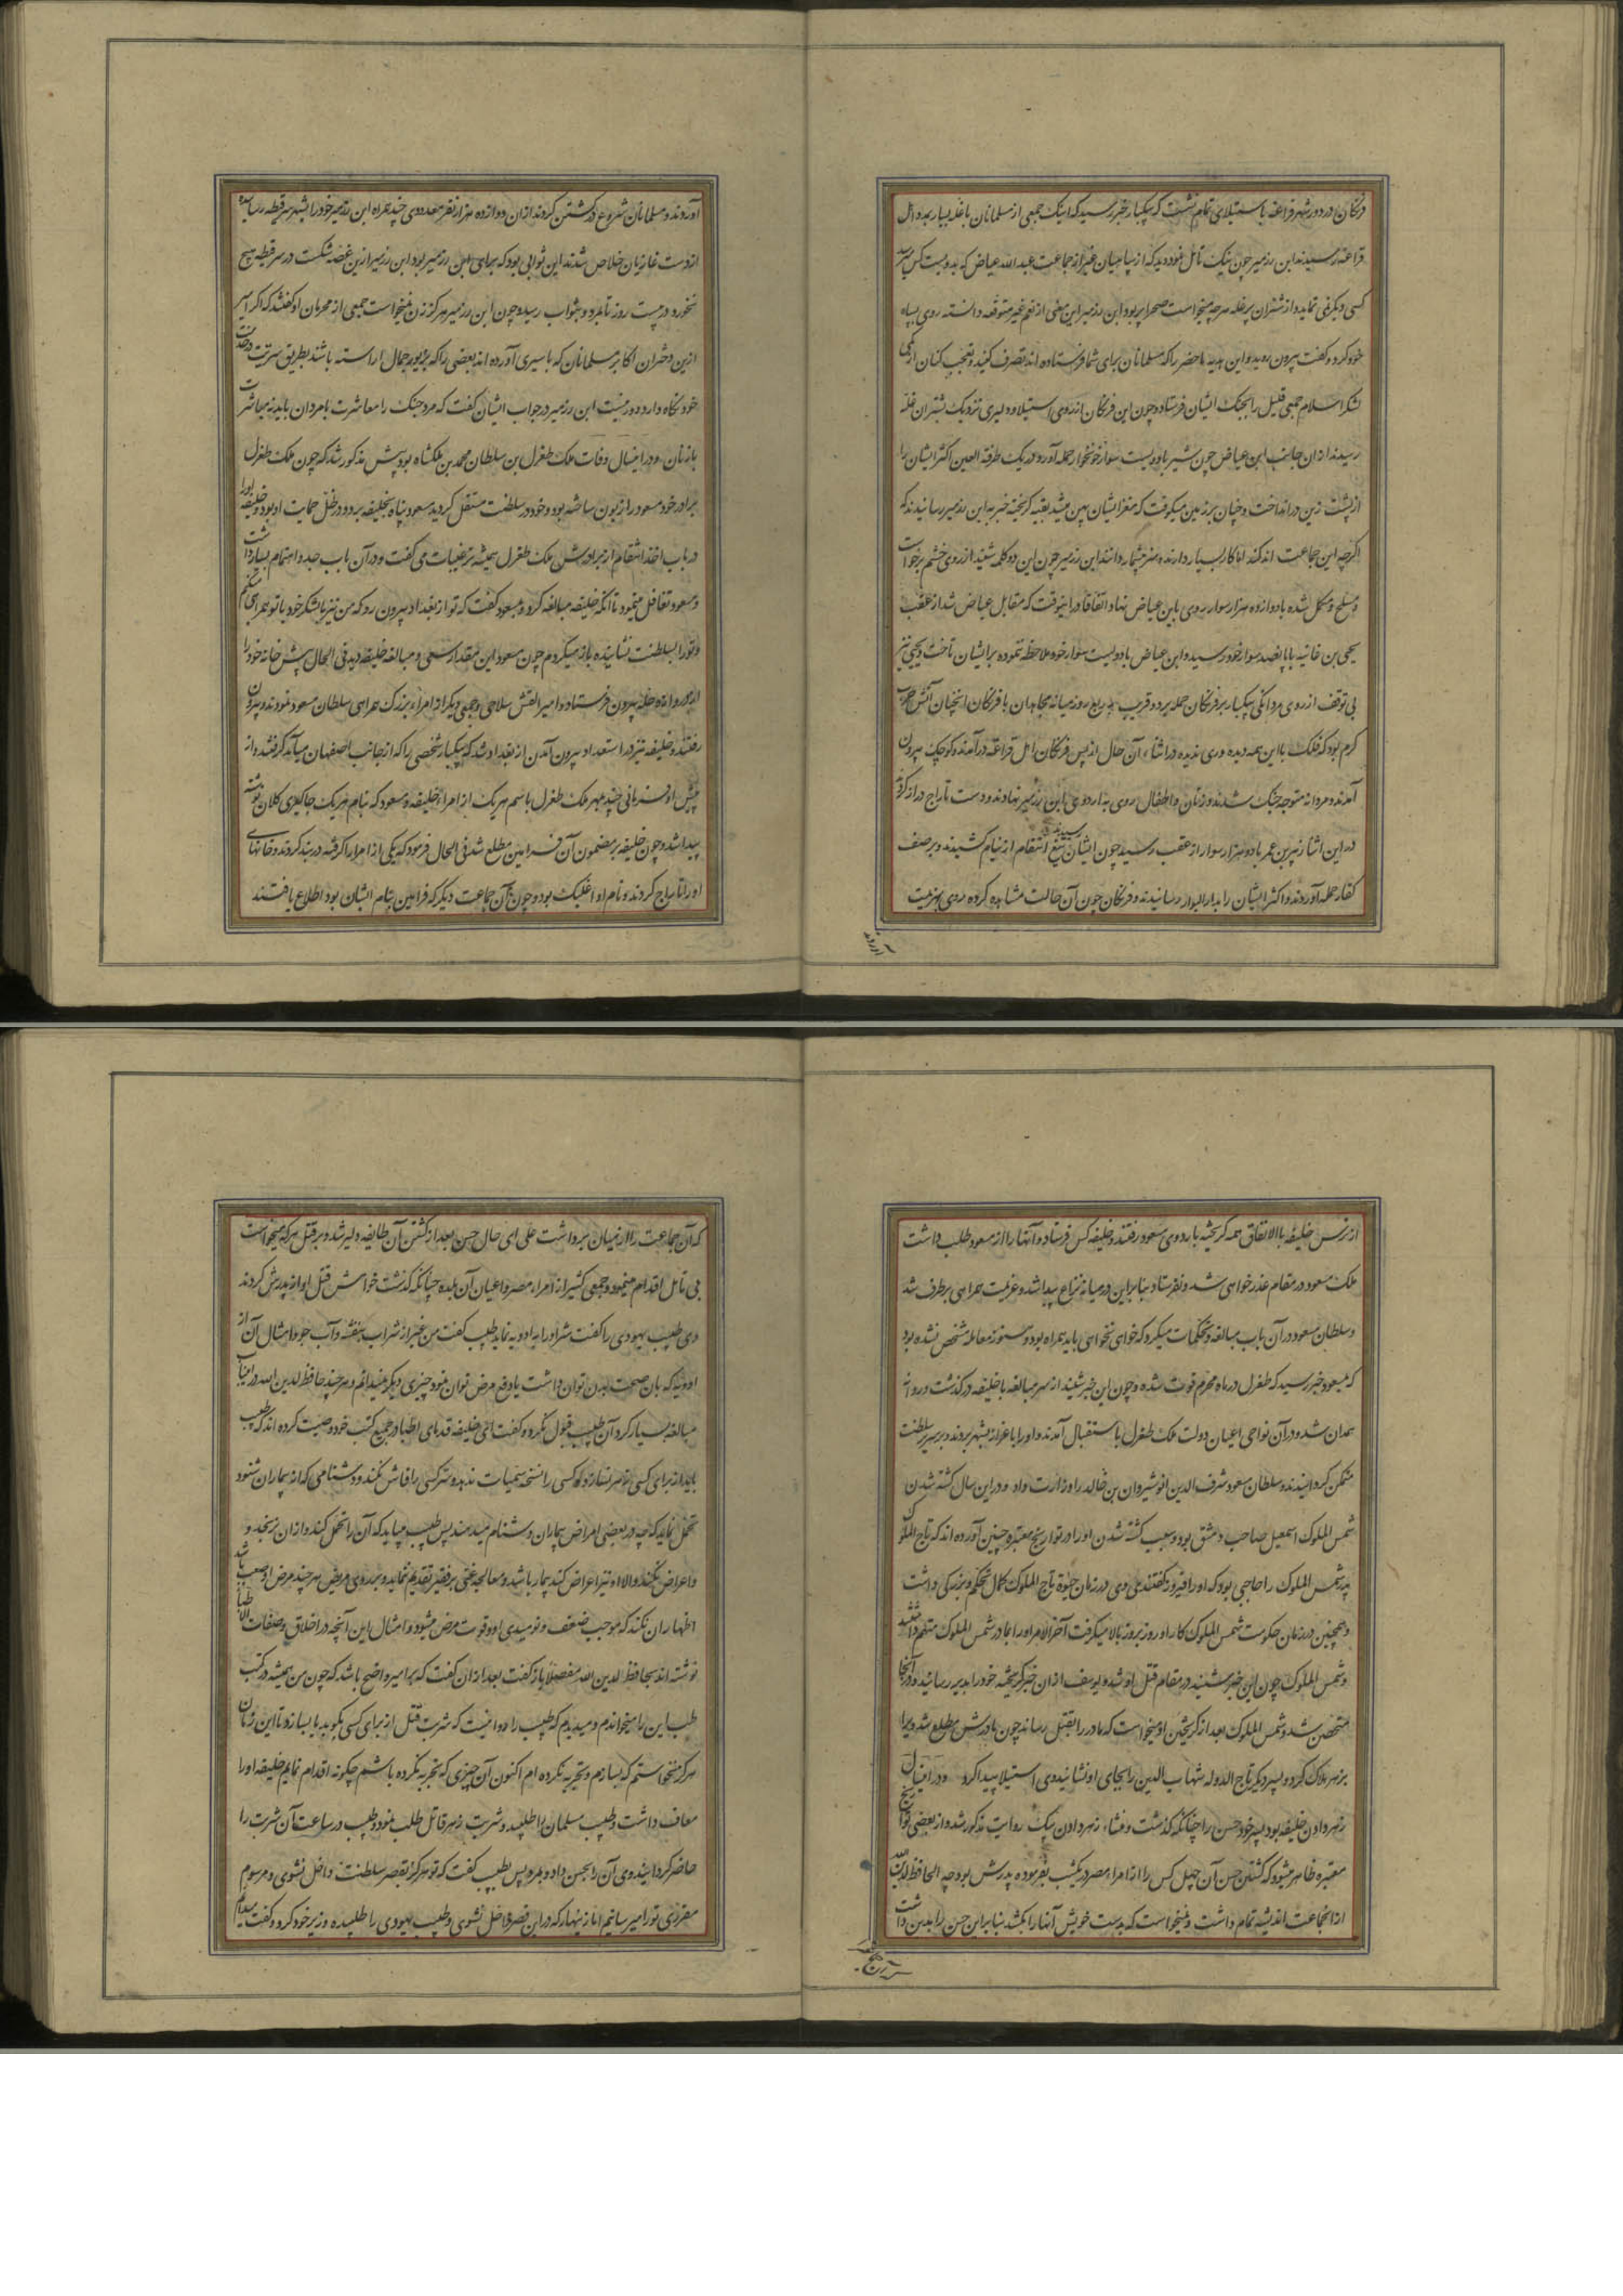 فرنکان در دور شهر فراغه با استیلای تمام نشست که بیکبار خبر رسید که اینک جمعی از مسلمانان با غله بسیار بمدد اهل
فراغه رسیدند ابن رزمیر چون نیک تامل نمود دید که از سپاهیان غیر از جماعت عبدالله عیاض که بدویست کس میرسد
کسی دیکر نمی نماید و از شتران پر غله هر چه میخواست صحرا پر بود ابن رزمیر این معنی از نعم غیر متوقعه دانسته روی بسپاه
خود کرد و کفت بیرون روید و این هدیه ماحضر را که مسلمانان برای شما فرستاده اند تصرف کنید و تعجب کنان از کمی
لشکر اسلام جمعی قلیل را بجنک ایشان فرستاد و چون این فرنکان از روی استیلا و دلیری نزدیک بشتران غله
رسیدند از ان جانب ابن عیاض چون شیر با دویست سوار خونخوار حمله آورد و در یک طرفة العین اکثر ایشان را
از پشت زین در انداخت و چنان بر زمین میکوفت که مغز ایشان پهن میشد بقیه کریخته خبر به ابن رزمیر رسانیدند که
اکرچه این جماعت اندکند اما کار بسیار دارند و هنر بیشمار دانند ابن رزمیر چون این دو کلمه شنید از روی خشم برخواست
و مسلح و مکمل شده با دوازده هزار سوار روی بابن عیاض نهاد اتفاقا در اینوقت که مقابل عیاض شد از عقب
یحیی بن غانیه با پانصد سوار خود رسید و ابن عیاض با دولیست سوار خود ملاحظه ننموده بر ایشان تاخت و یحیی نیز
بی توقف از روی مردانکی بیکبار بر فرنکان حمله برد و قریب بربع روز میانه مجاهدان با فرنکان انچنان آتش حرب
کرم بود که فلک با این همه دیده وری ندیده در اثناء آن حال از پس فرنکان اهل فراغه در آمدند و کوچک بیرون
آمدند و مردانه متوجه جنک شدند و زنان و اطفال روی به اردوی ابن رزمیر نهادند و دست تاراج دراز کردند
در این اثنا زبیر بن عمر با دو هزار سوار از عقب رسید چون ایشان رسیدند تیغ انتقام از نیام کشیدند و بر صف
کفار حمله آوردند و اکثر ایشان را بدار البوار رسانیدند و فرنکان چون آن حالت مشاهده کرده روی بهزیمت
آوردند
آوردند و مسلمانان شروع در کشتن کردند از ان دوازده هزار نفر معدودی چند همراه ابن رزمیر خود را بشهر سرقیطه رسانیده
از دست غازیان خلاص شدند این ثوابی بود که برای ابن رزمیر بود ابن رزمیر ازین غصه شکست در سرقیطه هیچ
نخورد و در بیست روز تا بمرد و بثواب رسید و چون ابن رزمیر هرکز زن نمیخواست جمعی از محرمان او کفتند که اکر امیر
ازین دختران اکابر مسلمانان که باسیری آورده اند بعضی را که بزیور جمال اراسته باشند بطریق سریت در خدمت
خود نکاه دارد دور نیست ابن رزمیر در جواب ایشان کفت که مرد جنک را معاشرت با مردان باید نه مباشرت
با زنان و در اینسال وفات ملک طغرل بن سلطان محمد بن ملکشاه بود پیش مذکور شد که چون ملک طغرل
برادر خود مسعود را زبون ساخته بود و خود در سلطنت مستقل کردید مسعود پناه بخلیفه برد و در ظل حمایت او بود و خلیفه او را
در باب اخذ انتقام از برادرش ملک طغرل همیشه ترغیبات می کفت و در آن باب جد و اهتمام بسیار داشت
و مسعود تغافل مینمود تا آنکه خلیفه مبالغه کرد و بمسعود کفت که تو از بغداد بیرون رو که من نیز با لشکر خود با تو همراهی میکنم
و تو را بسلطنت نشانیده باز میکردم چون مسعود این مقدار سعی و مبالغه خلیفه دید فی الحال پیش خانه خود را
از دروازه حله بیرون فرستاد و امیر القتش سلاحی و جمعی دیکر از امراء بزرک همراهی سلطان مسعود نمودند و بیرون
رفتند و خلیفه نیز در استعداد بیرون آمدن از بغداد شد که بیکبار شخصی را که از جانب اصفهان میآمد کرفتند و از
پیش او فرمانی چند بمهر ملک طغرل باسم هریک از امراء خلیفه و مسعود که بنام هریک جاکیری کلان نوشته
پیدا شد و چون خلیفه بر مضمون آن فرامین مطلع شد فی الحال فرمود که یکی از امرا را کرفته در بند کردند و خانهای
او را تاراج کردند و نام او اغلبک بود و چون آن جماعت دیکر که فرامین بنام ایشان بود اطلاع یافتند
از ترس خلیفه بالاتفاق همه کریخته باردوی مسعود رفتند و خلیفه کس فرستاد و آنها را از مسعود طلب داشت
ملک مسعود در مقام عذر خواهی شد و نفرستاد بنابراین در میانه نزاع پیدا شد و عزیمت همراهی برطرف شد
و سلطان مسعود در آن باب مبالغه و تحکمات میکرد که خواهی نخواهی باید همراه بود و هنوز معامله مشخص نشده بود
که بمسعود خبر رسید که طغرل در ماه محرم فوت شده و چون این خبر شنید از سر مبالغه با خلیفه در کذشت و روانه
همدان شد و در آن نواحی اعیان دولت ملک طغرل باستقبال آمدند و او را باعزاز بشهر بردند و بر سریر سلطنت
متمکن کردانیدند و سلطان مسعود شرف الدین انوشیروان بن خالد را وزارت داد و در این سال کشته شدن
شمس الملوک اسمعیل صاحب دمشق بود و سبب کشته شدن او را در تواریخ معتبره چنین آورده اند که تاج الملوک
پدر شمس الملوک را حاجبی بود که او را فیروز کفتندی وی در زمان حیوة تاج الملوک کمال تحکم و بزرکی داشت
و همچنین در زمان حکومت شمس الملوک کار او روز بروز بالا میکرفت آخر الامر او را بمادر شمس الملوک متهم داشتند
و شمس الملوک چون این خبر شنید در مقام قتل او شد و یوسف از ان خبر کریخته خود را بدیر رسانید و در آنجا
متحصن شد و شمس الملوک بعد از کریختن او میخواست که مادر را بقتل رساند چون مادرش مطلع شد ویرا
بزهر هلاک کرد و پسر دیکر تاج الدوله شهاب الدین را بجای او نشانید وی استیلا پیدا کرد و در اینسال
زهر دادن خلیفه بود پسر خود حسن را چنانکه کذشت و منشاء زهر دادن بیک روایت مذکور شد و از بعضی تواریخ
معتبره ظاهر میشود که کشتن حسن آن چهل کس را از امراء مصر در یکشب بفرموده پدرش بود چه الحافظ لدین الله
از انجماعت اندیشه تمام داشت و نمیخواست که بدست خویش آنها را بکشد بنابراین حسن را بدین داشت
که آن جماعت را از میان برداشت علی ای حال حسن بعد از کشتن آن طایفه دلیر شد و بر قتل هر که میخواست
بی تامل اقدام مینمود و جمعی کثیر از امراء مصر و اعیان آن بلده چنانکه کذشت خواهش قتل او از پدرش کردند
وی طبیب یهودی را کفت شر او را به ادویه نماید طبیب کفت من غیر از شراب بنفشه و آب جو و امثال آن از
ادویه که بان صحت بدن توان داشت یا دفع مرض توان نمود چیزی دیکر نمیدانم و هر چند حافظ لدین الله در اینباب
مبالغه بسیار کرد آن طبیب قبول نکرد و کفت ای خلیفه قدمای اطبا در جمیع کتب خود وصیت کرده اند که طبیب
باید از برای کسی زهر نسازد و کسی را نسخه سمیات ندهد و سر کسی را فاش نکند و دشنامی که از بیماران شنود
تحمل نماید که چه در بعضی امراض بیماران دشنام میدهند پس طبیب میباید که آن را تحمل کند و از ان نرنجد و
و اعراض نکند و الا او نیز اعراض کند بیمار باشد و معالجه غنی بر فقیر تقدیم ننماید و بر روی مریض هر چند مرض او صعب باشد
اظهار ان نکند که موجب ضعف و نومیدی او و قوت مرض میشود و امثال این آنچه در اخلاق و صفات اطبا
نوشته اند بحافظ لدین الله مفصلا باز کفت بعد از ان کفت که بر امیر واضح باشد که چون من همیشه در کتب
طب این را میخواندم و میدیدم که طبیب را روا نیست که شربت قتل از برای کسی بکوید یا بسازد تا این زمان
هرکز نخواستم که بسازم و تجربه نکرده ام اکنون آن چیزی که تجربه نکرده باشم چکونه اقدام نمایم خلیفه او را
معاف داشت و طبیب مسلمان را طلبید و شربت زهر قاتل طلب نمود و طبیب در ساعت آن شربت را
حاضر کردانید وی آن را بحسن داد و بمرد پس بطبیب کفت که تو هرکز بقصر سلطنت داخل نشوی و مرسوم
مقرری تو را میرسانیم اما زینهار که در این قصر داخل نشوی و طبیب یهودی را طلبیده وزیر خود کرد و کفت میدانم